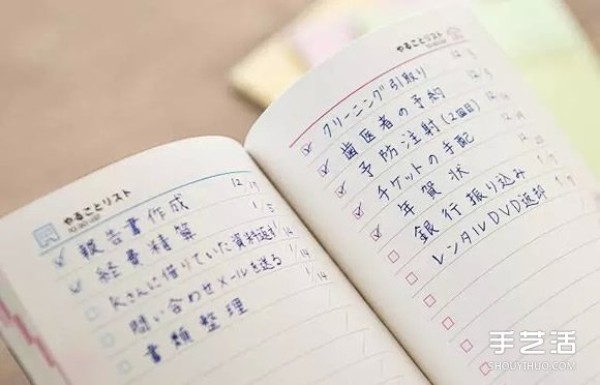 やることリスト
TO DO LIST
報告書作成 12/19
経費精算 1/5
Kさんに借りていた資料返す 1/14
問い合わせメールを送る 1/14
書類整理
やることリスト
クリーニング引取り 12/5
歯医者の予約 12/5
予防注射(2回目) 12
チケットの手配 12
年賀状 12/20
銀行振り込み 1/7
レンタルDVD返却 1/17
手艺活
SHOUYIHUO.COM